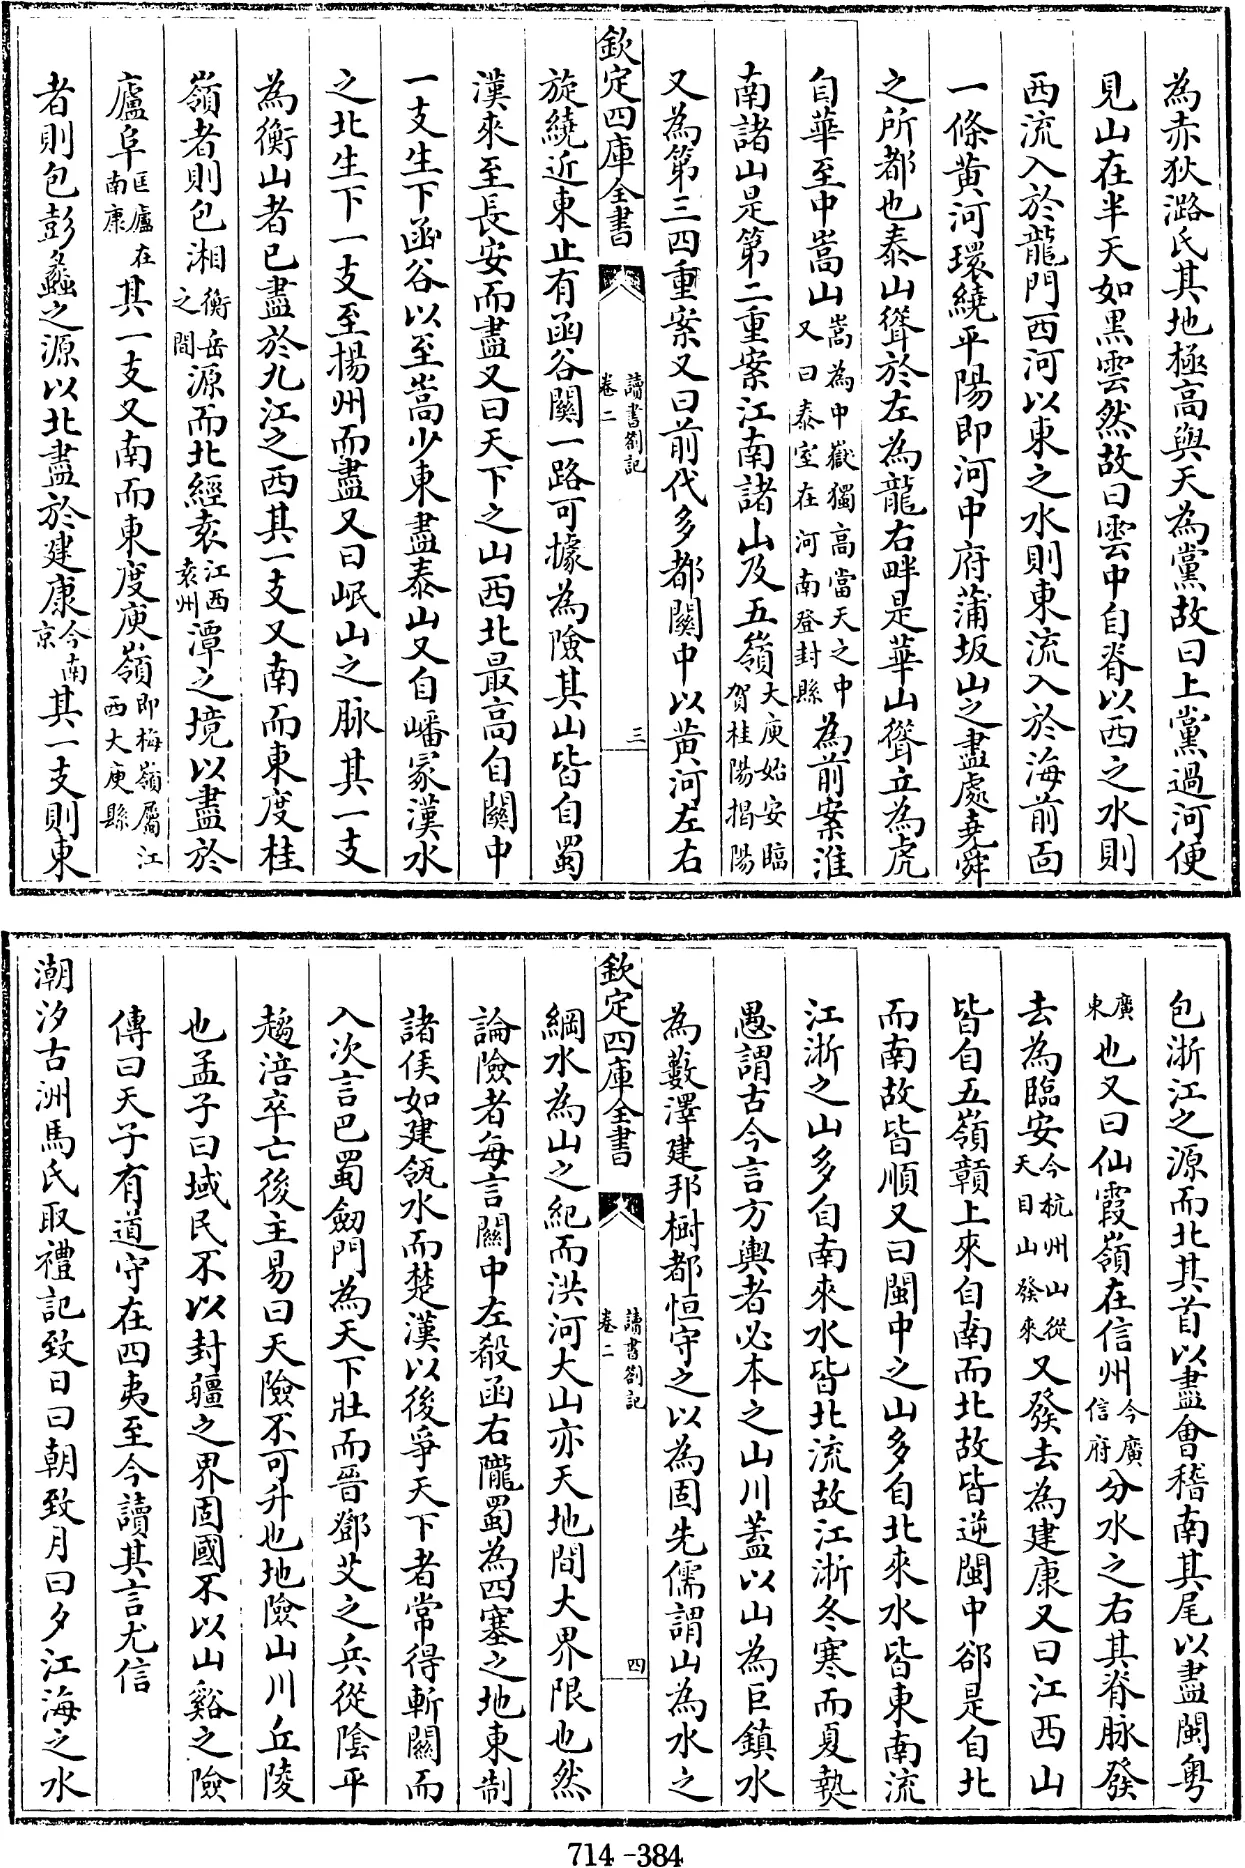 為赤狄潞氏其地極高與天為黨故曰上黨過河便
見山在半天如黒雲然故曰雲中自脊以西之水則
西流入於龍門西河以東之水則東流入於海前面
一條黄河環繞平陽即河中府蒲坂山之盡處堯舜
之所都也泰山聳於左為龍右畔是華山聳立為虎
自華至中嵩山嵩為中嶽獨高當天之中又曰泰室在河南登封縣為前案淮
南諸山是第二重案江南諸山及五嶺大庾始安臨賀桂陽揭陽
又為第三四重案又曰前代多都關中以黄河左右
欽定四庫全書
讀書劄記
卷二
三
旋繞近東止有函谷關一路可據為險其山皆自蜀
漢來至長安而盡又曰天下之山西北最高自關中
一支生下函谷以至嵩少東盡泰山又自嶓冢漢水
之北生下一支至揚州而盡又曰岷山之脈其一支
為衡山者已盡於九江之西其一支又南而東度桂
嶺者則包湘衡岳之間源而北經袁江西袁州潭之境以盡於
廬阜匡廬在南康其一支又南而東度庾嶺即梅嶺屬江西大庾縣
者則包彭蠡之源以北盡於建康今南京其一支則東
包浙江之源而北其首以盡會稽南其尾以盡閩粤
廣東也又曰仙霞嶺在信州今廣信府分水之右其脊脉發
去為臨安今杭州山從天目山發來又發去為建康又曰江西山
皆自五嶺贛上來自南而北故皆逆閩中郤是自北
而南故皆順又曰閩中之山多自北來水皆東南流
江浙之山多自南來水皆北流故江浙冬寒而夏熱
愚謂古今言方輿者必本之山川蓋以山為巨鎮水
為藪澤建邦樹都恒守之以為固先儒謂山為水之
欽定四庫全書
讀書劄記
卷二
四
綱水為山之紀而洪河大山亦天地間大界限也然
論險者每言關中左殽函右隴蜀為四塞之地東制
諸侯如建瓴水而楚漢以後爭天下者常得斬關而
入次言巴蜀劒門為天下壯而晉鄧艾之兵從陰平
趨涪卒亡後主易曰天險不可升也地險山川丘陵
也孟子曰域民不以封疆之界固國不以山谿之險
傳曰天子有道守在四夷至今讀其言尤信
潮汐古洲馬氏取禮記致日曰朝致月曰夕江海之水
714-384